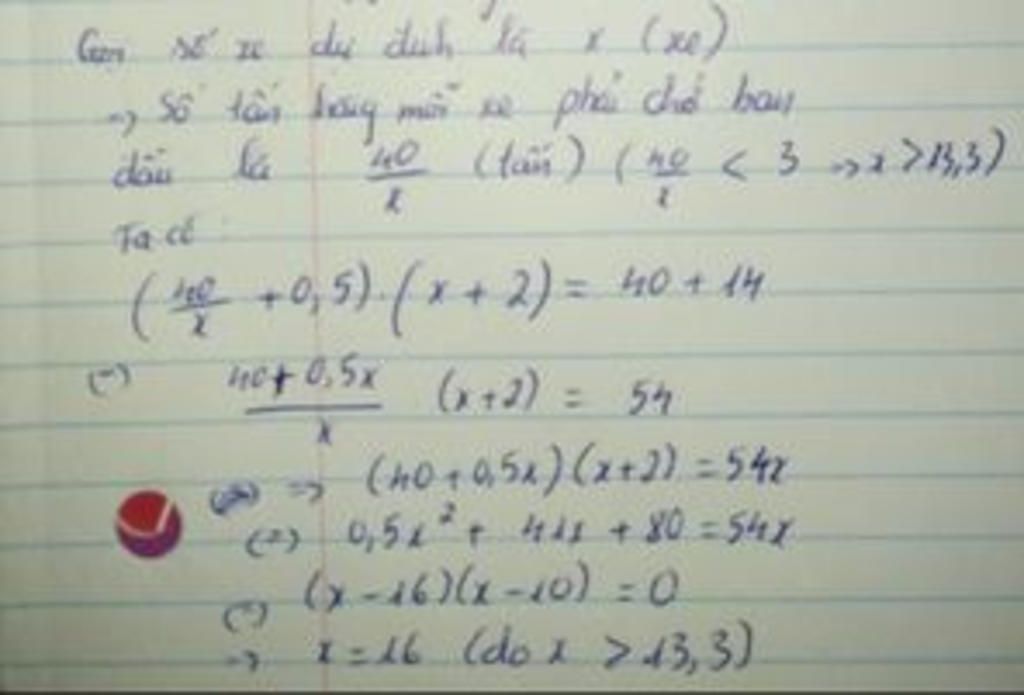 Gọi số xe dự định là x (xe)
=> Số tấn hàng mỗi xe phải chở ban
đầu là 40/x (tấn) (40/x < 3 => x > 13,3)
Ta có :
(40/x + 0,5).(x + 2) = 40 + 14
(=) (40 + 0,5x)/x (x+2) = 54
=> (40 + 0,5x)(x+2) = 54x
(=) 0,5x² + 41x + 80 = 54x
(=) (x - 16)(x - 10) = 0
=> x = 16 (do x > 13,3)